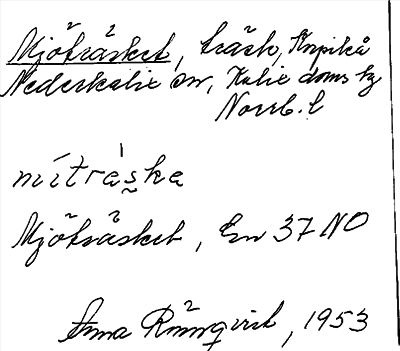 Mjöträsket, träsk, Knpikå
Nederkalix sn, Kalix doms hg
Norrb. l
mítra̍s̰ka
Mjöträsket, En 37 NO
Anna Rönnqvist, 1953